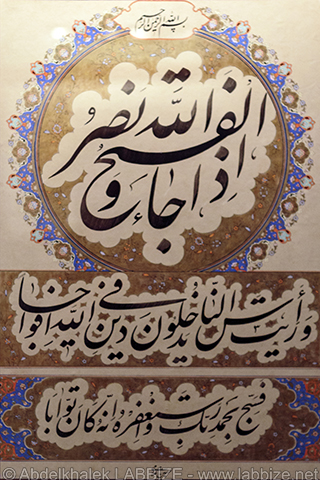 بسم الله الرحمن الرحیم
اذا جاء نصر الله و الفتح
و رأیت الناس یدخلون فی دین الله افواجا
فسبح بحمد ربک و استغفره انه کان توابا
© Abdelkhalek LABBIZE - www.labbize.net